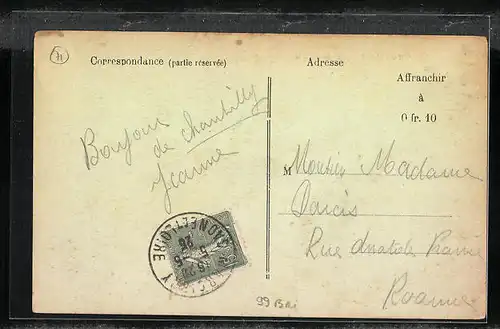 Correspondance (partie réservée)
Adresse
Affranchir
à
0 fr. 10
Bonjour
de chantilly
Jeanne
M Monsieur Madame
Darcis
Rue Anatole France
Roanne
SAONE ET LOIRE
99 Bai